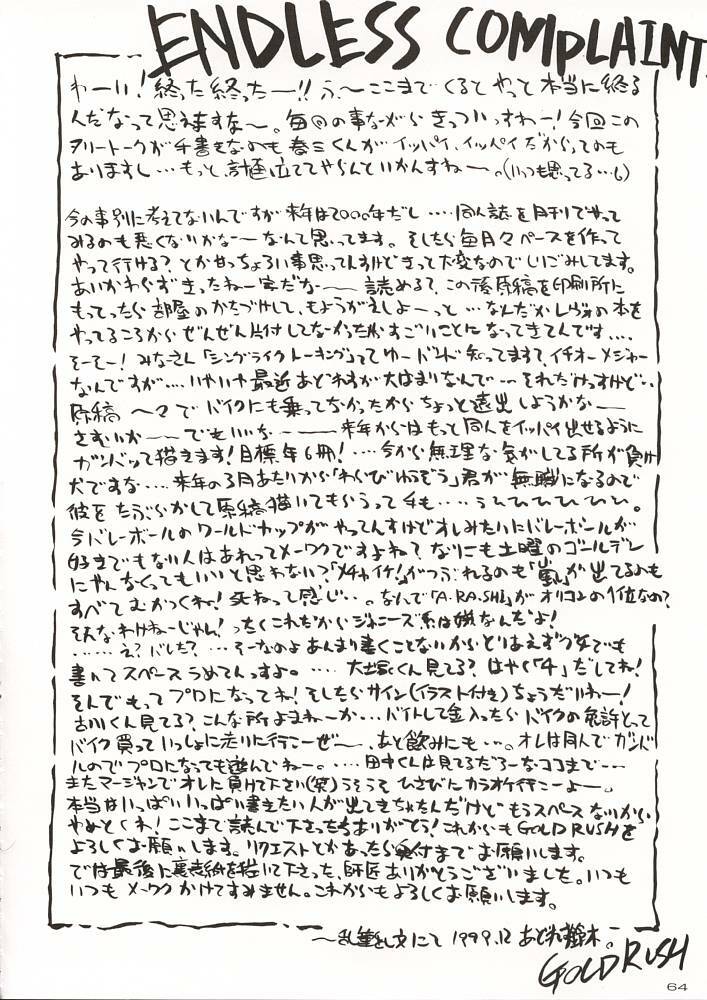 ENDLESS COMPLAINT.
わーい!終った終ったー!!ふ〜ここまでくるとやっと本当に終る
んだなって思えますな〜。毎回の事ながらきっついっすわー!今回この
フリートークが手書きなのも春三くんがイッパイ、イッパイだからってのも
ありますし…もっと、計画立ててやらんといかんすねー。(いつも思ってる…
今の事別に考えてないんですが来年は2000年だし‥‥同人誌を月刊でやって
みるのも悪くないかなーなんて思ってます。そしたら毎月々ペースを作って
やって行ける?とか甘っちょろい事思ってんすけどきっと大変なのでしりごみしてます。
あいかわらずきったねー字だなー 読めるて、この後原稿を印刷所に
もってったら部屋のかたづけして、もようがえしよーっと…なんだかレヴォの本を
やってるころからぜんぜん片付してなかったからすごいことになってきてんです‥‥
そーそー!みなさん「シングライクトーキング」ってゆーバンド知ってますて、イチオーメジャー
なんですが‥‥いやいや最近あどれすが大はまりなんで…それだけっすけど‥
原稿 〜々でバイクにも乗ってなかったからちょっと遠出しようかなー
さむいかーーでもいいなーー来年からはもっと同人をイッパイ出せるように
ガンバッて描きます!目標年6冊!‥‥今から無理な気がしてる所が負け
犬ですな‥‥来年の3月あたりから「わらびゆうぞう」君が無職になるので
彼をたぶらかして原稿描いてもらうって手も‥‥うひひひひひひ。
今バレーボールのワールドカップがやってんすけどオレみたいにバレーボールが
好きでもない人はあれってメーワクですよねて なにも土曜のゴールデン
にやんなくってもいいと思わない?「メチャイケ!」がつぶれるのも「嵐」が出てるのも
すべてむかつくわ!死ねって感じ…。なんで「A・RA・SHI」がオリコンの1位なの?
そんなわけねーじゃん!ったくこれだからジャニーズ系は嫌なんだよ!
‥‥‥え?バレた?‥‥そーなのよあんまり書くことないからとりあえず1文でも
書いてスペースうめてんっすよ。‥‥大塚くん見てる?はやく「4」だしてね!
そんでもってプロになってね!そしたらサイン(イラスト付き)ちょうだいねー!
古川くん見てる?こんな所よまねーか…バイトして金入ったらバイクの免許とって
バイク買っていっしょに走りに行こーぜ〜、あと飲みにも…。オレは同人でガンバ
ルのでプロになっても遊んでねー。‥‥田中くんは見てるだろーなココまで…
またマージャンでオレに負けて下さい(笑)うそうそひさびにカラオケ行こーよー。
本当はいっぱいいっぱい書きたい人が出てきちゃたんだけどもうスペースないから
やめとくネ!ここまで読んで下さった方ありがとう!これからもGOLD RUSHを
よろしくお願いします。リクエストとかあったら奥付までお願いします。
では最後に裏表紙を描いて下さった、師匠ありがとうございました。いつも
いつもメーワクかけてすみません。これからもよろしくお願いします。
〜乱筆乱文にて 1999.12 あどれす鈴木。
GOLD RUSH
64